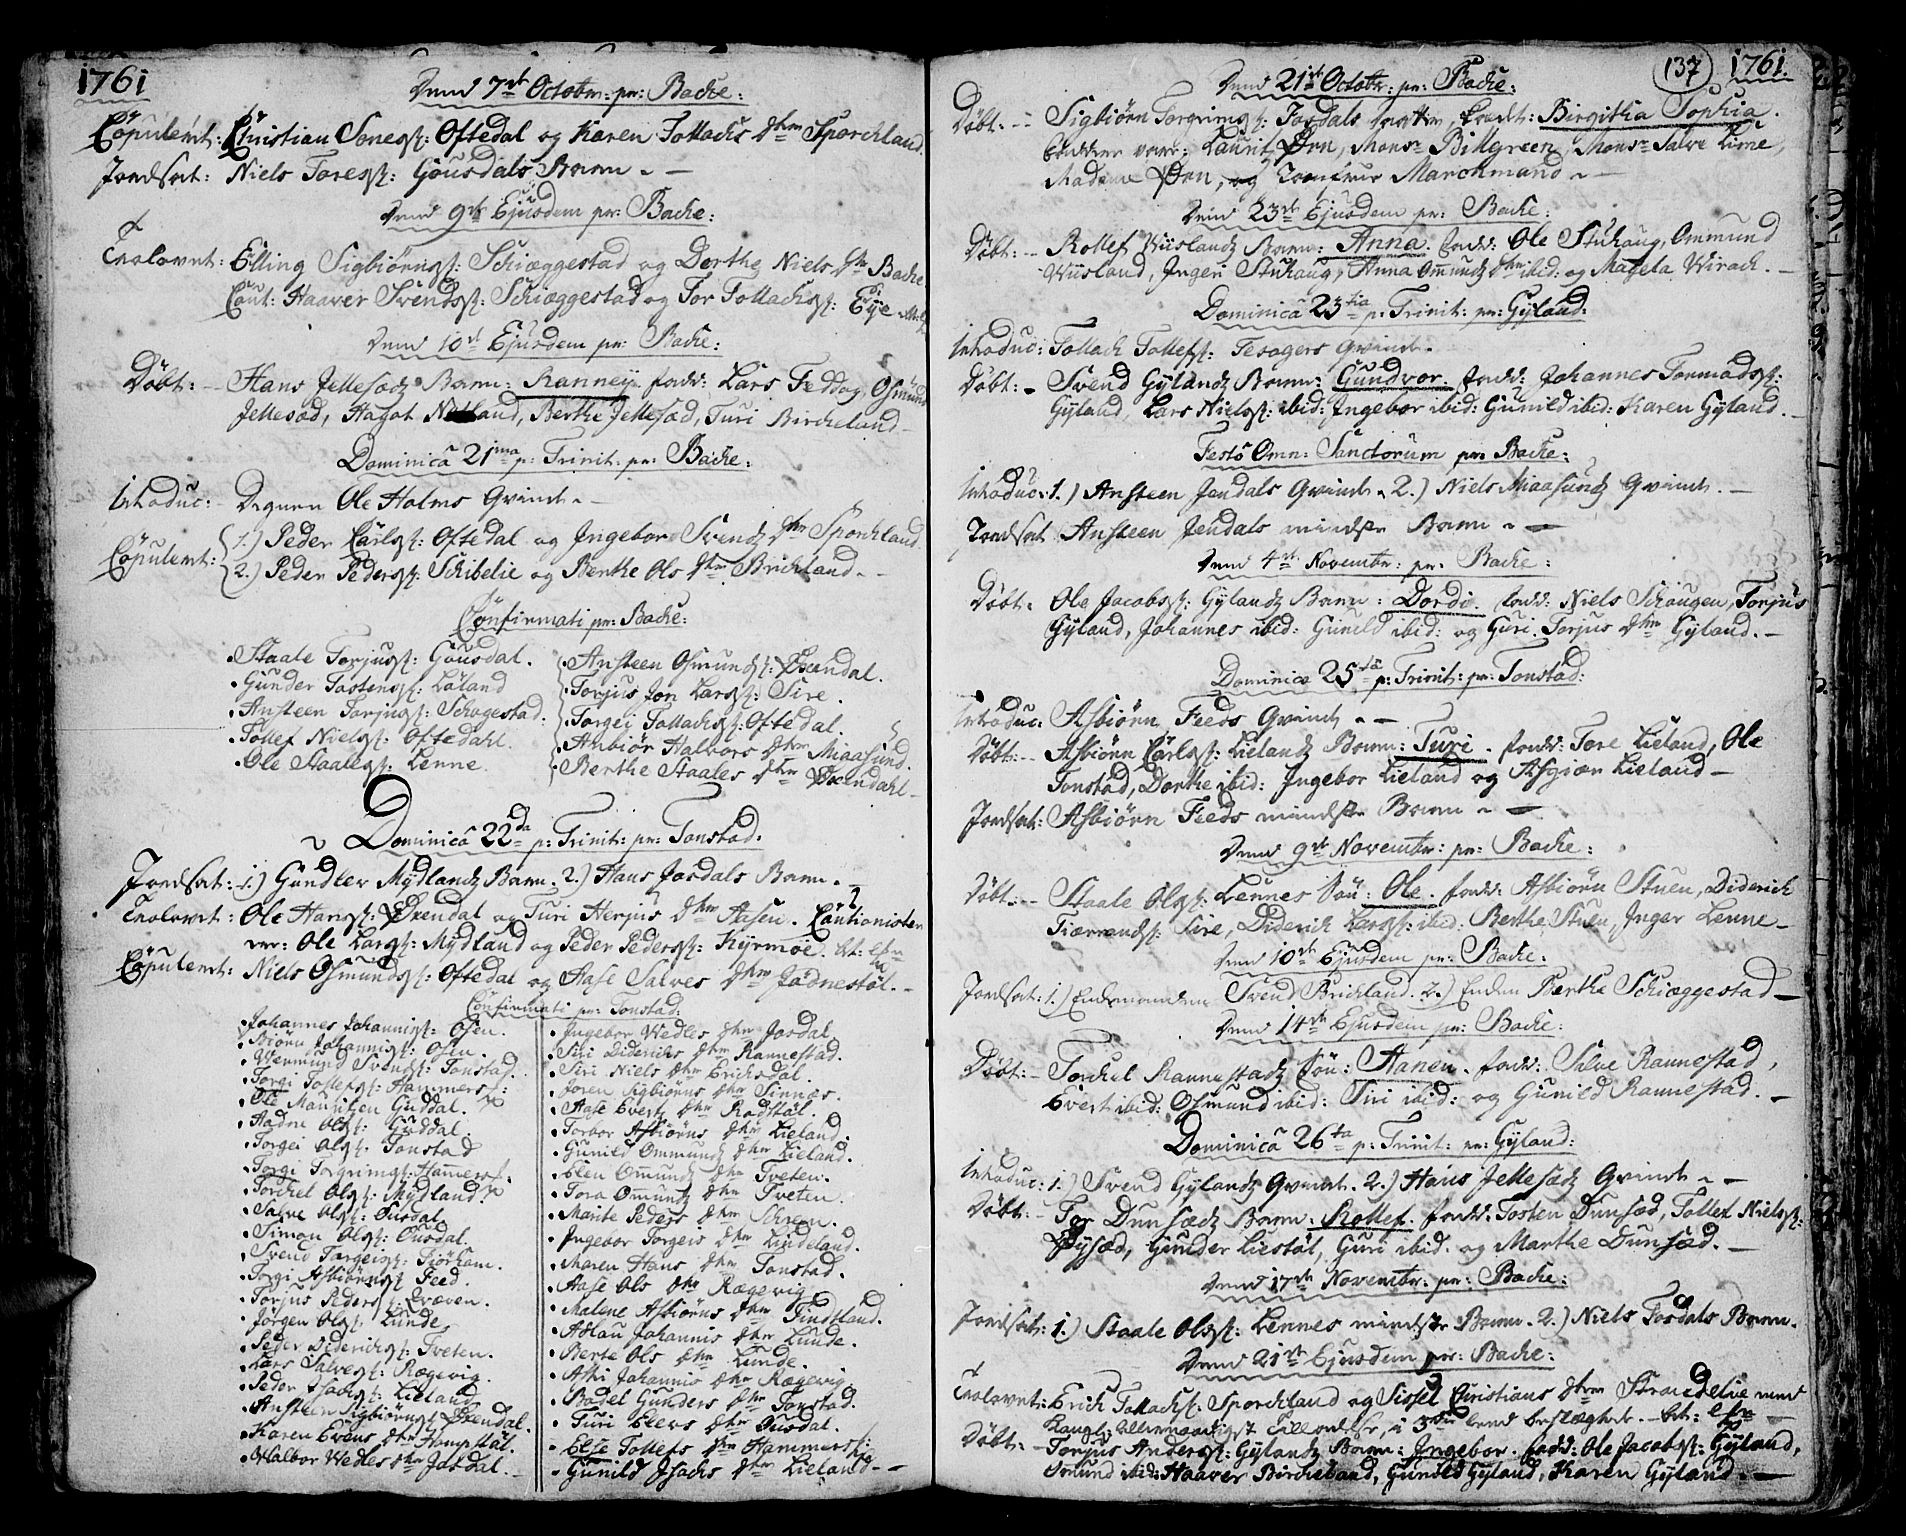 1761
Dend 7de Octobr: pr: Backe:
Copuleret: Christian Jones: Oftedal og Karen Tollachs dtr Sporckland.
Jordsat: Niels Tores: Gousdals Barn.
Dend 9de Ejusdem pr: Backe:
Trolovet: Elling Sigbiörns: Schiæggestad og Dorthe Niels dtr Backe
Caut: Haaver Svends: Schiæggestad og Tor Tollachs: Eye
Dend 10de Ejusdem pr: Backe:
Döbt: Hans Jellesæds Barn: Ranney. fadd: Lars Feddog, Osmund
Jellesæd, Hagot Netland, Berthe Jellesæd, Turi Birckeland
Dominica 21ma p: Trinit: pr: Backe:
Introduc: Degnen Ole Holms Qvinde
Copuleret: 1.) Peder Carls: Oftedal og Ingebor Svends dtr Sporckland
2.) Peder Peders: Schibelie og Berthe Ols dtr Brickland.
Confirmati pr: Backe:
Staale Torjus: Gousdal.
Gunder Tostens: Löland
Ansteen Torjus: Schogestad.
Tollef Niels: Oftedahl.
Ole Staales: Lenne.
Ansteen Osmunds: Øxendal.
Torjus Jon Lars: Sire.
Torgei Tollachs: Oftedal.
Anbiör Halvors dtr Miaasund.
Berthe Staales dtr Øxendahl
Dominica 22da p: Trinit: pr: Tonstad:
Jordsat: 1.) Gundler Mydlands Barn. 2.) Hans Josdals Barn.
Trolovet: Ole Hans: Øxendal og Turi Herjus dtr Aasen. Cautionister
var: Ole Lars: Mydland og Peder Peders: Kyrmoe.
Copuleret: Niels Osmunds: Oftedal og Aase Salves dtr Jödnestöl.
Confirmati pr: Tonstad:
Johannes Johannis: Osen.
Biörn Johannis: Osen.
Wermund Svends: Tonstad.
Torgi Tollefs: Hammers:
Ole Mauritzen Guddal.
Aadne Ols: Guddal.
Torgei Ols: Tonstad
Torgi Torgrims: Hamers:
Torchel Ols: Mydland
Salve Ols: Ousdal
Simon Ols: Ousdal.
Svend Torgeis: Fiörham.
Torgi Asbiörns: Feed.
Torjus Peders: Qvæven.
Jörgen Ols: Lunde
Peder Diderichs: Tveten.
Lars Salves: Rægevig.
Peder Isachs: Lieland
Ansteen Sigbiörns: Øxendal.
Karen Evens dtr Hompstöl.
Walbor Wedles dtr Josdal.
Ingebor Wedles dtr Josdal.
Siri Diderichs dtr Rannestad.
Siri Niels dtr Ericksdal.
Joren Sigbiörns dtr Sinnæs.
Aase Everts dtr Rödstöl.
Torbor Asbiörns dtr Lieland.
Gunild Ommunds dtr Lieland.
Elen Omunds dtr Tveten.
Tora Omunds dtr Tveten.
Marite Peders dtr Schreen.
Ingebor Torgers dtr Lindeland.
Maren Hans dtr Tonstad.
Aase Ols dtr Rægevig
Malene Asbiörns dtr Findtland.
Aslau Johannis dtr Lunde.
Berte Ols dtr Lunde.
Aski Johannis dtr Rægevig
Bodel Gunders dtr Tonstad.
Turi Elevs dtr Ousdal.
Else Tollefs dtr Hammers:
Gunild Isachs dtr Lieland
137 1761.
Dend 21de Octobr: pr: Backe:
Döbt: Sigbiörn Torgrims: Josdals Datter, kaldt: Birgitha Sophia.
Faddere vare: Laurits Örn, Monsr Billgreen, Monsr Salve Lime,
Madame Örn, og Jomfrue Marchmand
Dend 23de Ejusdem pr: Backe:
Döbt: Rollef Wiislands Barn: Anna. fadd: Ole Stuhaug, Ommund
Wiisland, Ingeri Stuhaug, Anna Omunds dtr ibid: og Magela Wirach.
Dominica 23tia p: Trinit: pr: Gyland:
Introduc: Tollach Tollefs: Tesagers Qvinde.
Döbt: Svend Gylands Barn: Gundvor. fadd: Johannes Tormods:
Gyland, Lars Niels: ibid: Ingebor ibid: Gunild ibid: Karen Gyland.
Festo Omn: Sanctorum pr: Backe:
Introduc: 1.) Ansteen Jendals Qvinde. 2.) Niels Miaasunds Qvinde.
Jordsat Ansteen Jendals mindste Barn
Dend 4de Novembr: pr: Backe:
Döbt: Ole Jacobs: Gylands Barn: Dordi. fadd: Niels Schougen, Torjus
Gyland, Johannes ibid: Gunild ibid: og Guri Torjus dtr Gyland.
Dominica 25ta p: Trinit: pr: Tonstad:
Introduc: Asbiörn Feeds Qvinde
Döbt: Asbiörn Carls: Lielands Barn: Turi. fadd: Tore Lieland, Ole
Tonstad, Dorthe ibid: Ingebor Lieland og Asgiær Lieland
Jordsat: Asbiörn Feeds mindste Barn
Dend 9de Novembr: pr: Backe:
Döbt: Staale Ols: Lennes Sön: Ole. fadd: Asbiörn Stuen, Diderich
Fiærrands: Sire, Diderich Lars: ibid: Berthe Stuen, Inger Lenne
Dend 10de Ejusdem pr: Backe:
Jordsat: 1.) Enckemanden Svend Brickland. 2.) Encken Berthe Schiæggestad
Dend 14de Ejusdem pr: Backe:
Döbt: Torchel Rannestads Sön: Hanen. fadd: Salve Rannestad,
Evert ibid: Osmund ibid: Siri ibid: og Gunild Rannestad.
Dominica 26ta p: Trinit: pr: Gyland:
Introduc: 1.) Svend Gylands Qvinde. 2.) Hans Jellesæds Qvinde
Döbt: Tor Dunsæds Barn: Rollef. fadd: Tosten Dunsæd, Tollef Niels:
Øysæd, Gunder Liestöl, Guri ibid. og Marthe Dunsæd.
Dend 17de Novembr: pr: Backe:
Jordsat: 1.) Staale Ols: Lennes mindste Barn. 2.) Niels Josdals Barn.
Dend 21de Ejusdem pr: Backe:
Trolovet: Erich Tollachs: Sporckland og Sissel Christians dtr Strædelie med
Kongl: allernaadigst Tilladelse, i 3die leed beslægtede.
Döbt: Torjus Anders: Gylands Barn: Ingebor. fadd: Ole Jacobs: Gyland,
Osmund ibid: Haaver Birckeland, Gunild Gyland, Karen Gyland.